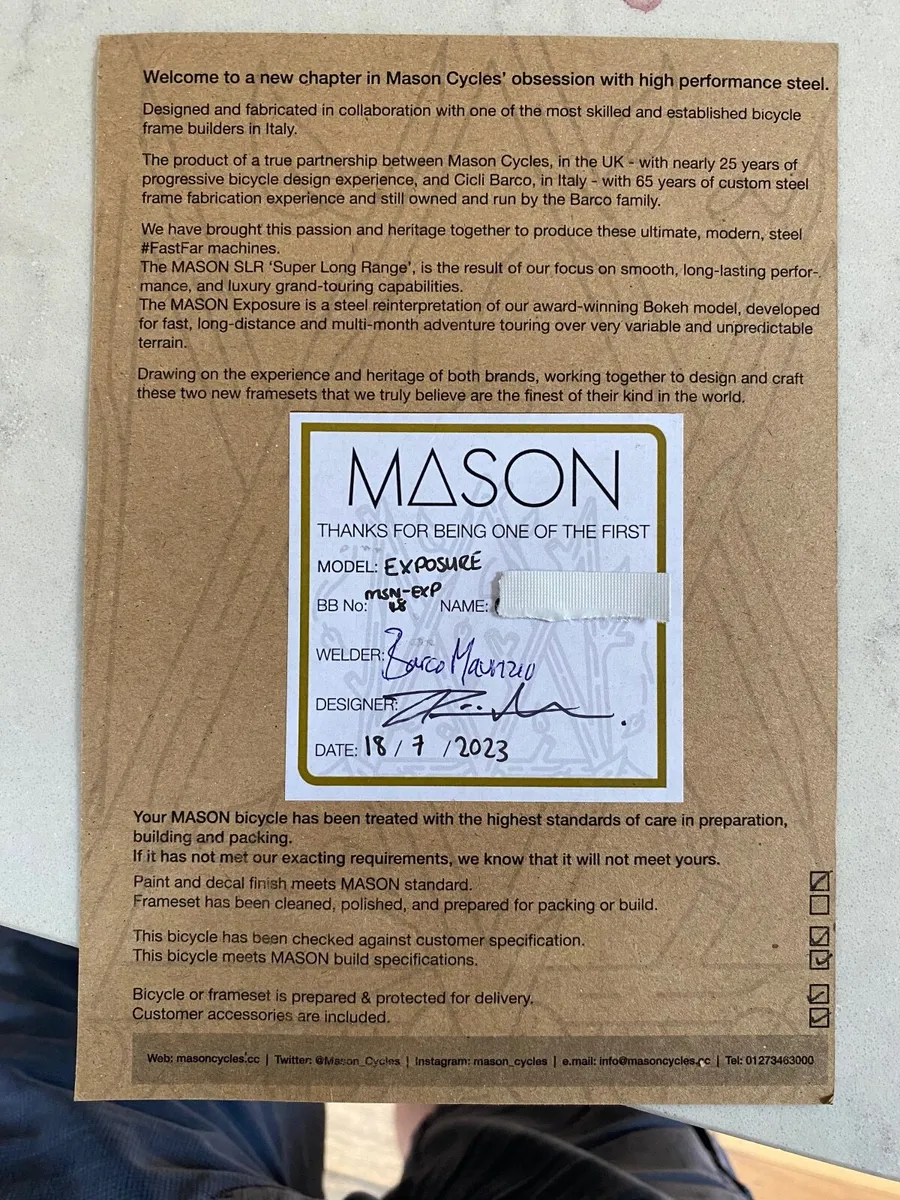 Welcome to a new chapter in Mason Cycles' obsession with high performance steel.
Designed and fabricated in collaboration with one of the most skilled and established bicycle
frame builders in Italy.
The product of a true partnership between Mason Cycles, in the UK - with nearly 25 years of
progressive bicycle design experience, and Cicli Barco, in Italy - with 65 years of custom steel
frame fabrication experience and still owned and run by the Barco family.
We have brought this passion and heritage together to produce these ultimate, modern, steel
#FastFar machines.
The MASON SLR 'Super Long Range', is the result of our focus on smooth, long-lasting perfor-
mance, and luxury grand-touring capabilities.
The MASON Exposure is a steel reinterpretation of our award-winning Bokeh model, developed
for fast, long-distance and multi-month adventure touring over very variable and unpredictable
terrain.
Drawing on the experience and heritage of both brands, working together to design and craft
these two new framesets that we truly believe are the finest of their kind in the world.
MASON
THANKS FOR BEING ONE OF THE FIRST
MODEL: EXPOSURE
BB No: MSN-EXP NAME:
WELDER: Barco Maurizio
DESIGNER:
DATE: 18 / 7 / 2023
Your MASON bicycle has been treated with the highest standards of care in preparation,
building and packing.
If it has not met our exacting requirements, we know that it will not meet yours.
Paint and decal finish meets MASON standard.
Frameset has been cleaned, polished, and prepared for packing or build.
This bicycle has been checked against customer specification.
This bicycle meets MASON build specifications.
Bicycle or frameset is prepared & protected for delivery.
Customer accessories are included.
Web: masoncycles.cc | Twitter: @Mason_Cycles | Instagram: mason_cycles | e.mail: info@masoncycles.cc | Tel: 01273463000